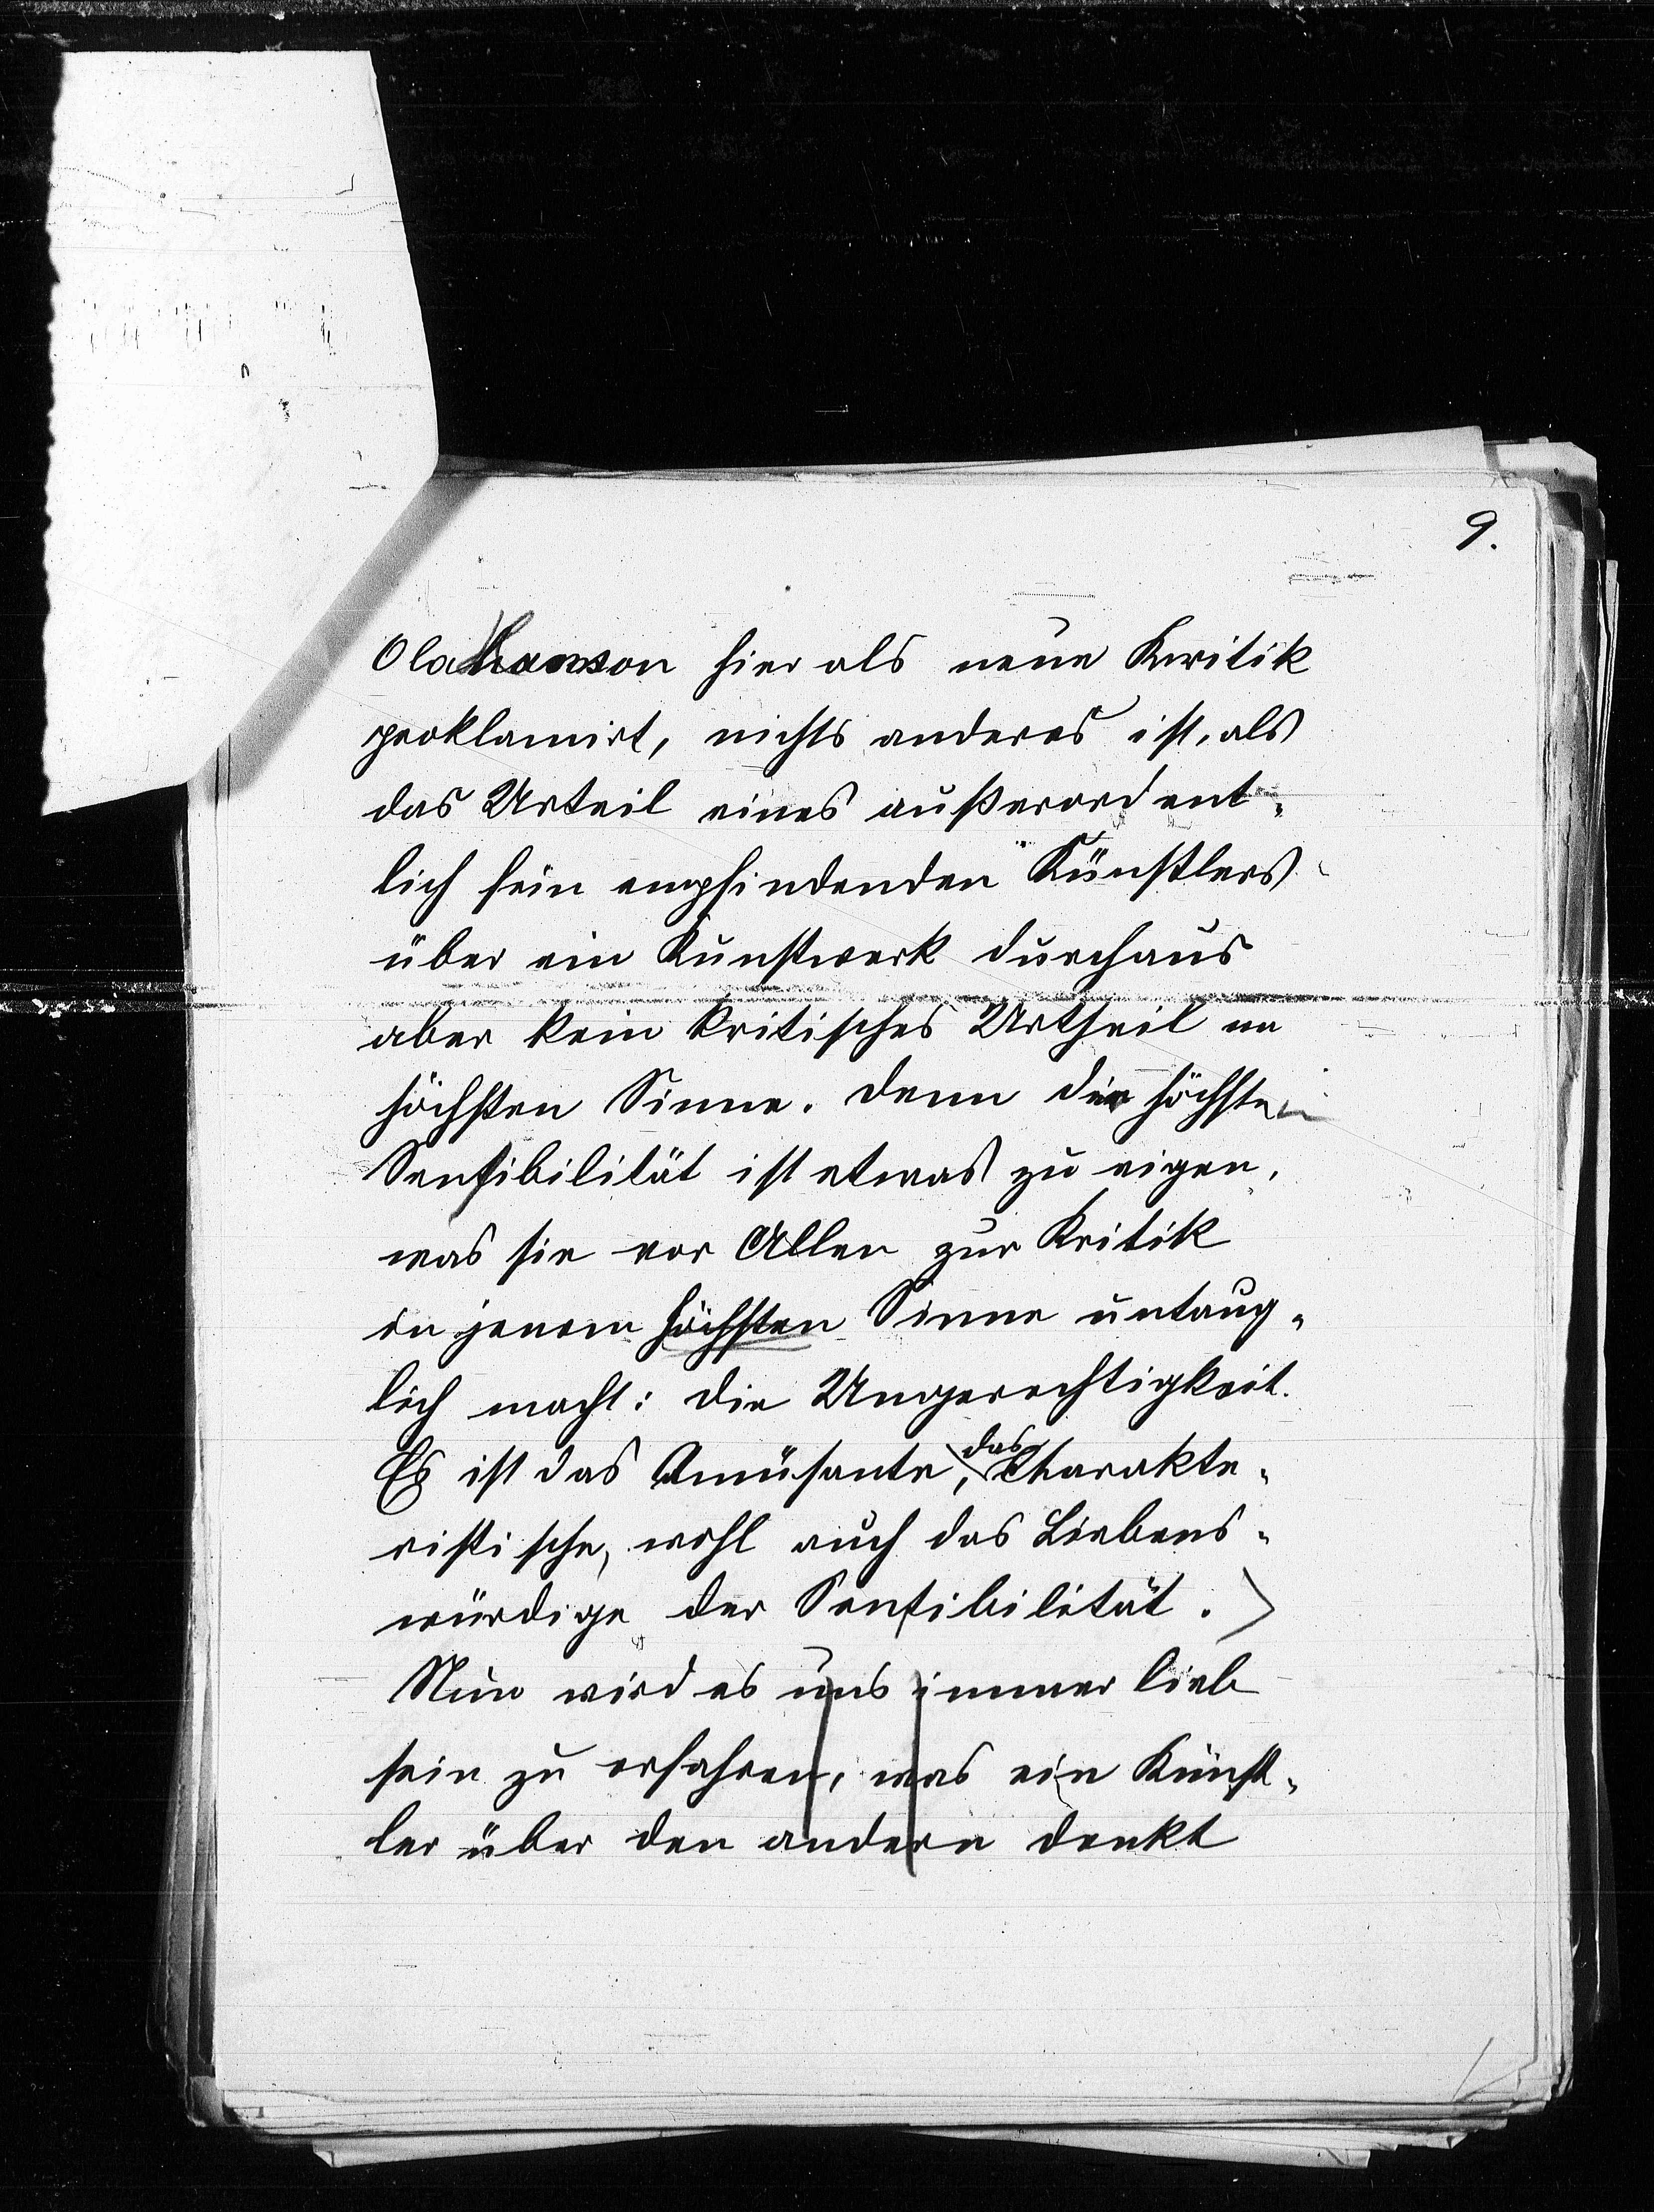 9.
Ola Hansson hier als neue Kritik
proklamirt, nichts anderes ist, als
das Urteil eines außerordent-
lich fein empfindenden Künstlers
über ein Kunstwerk durchaus
aber kein kritisches Urtheil im
höchsten Sinne. Denn der höchsten
Sensibilität ist etwas zu eigen,
was sie vor Allen zur Kritik
in jenem höchsten Sinne untaug-
lich macht: die Ungerechtigkeit.
Es ist das Amüsante, das Charakte-
ristische, wohl auch das Liebens-
würdige der Sensibilität.
Nun wird es uns immer lieb
sein zu erfahren, was ein Künst-
ler über den andern denkt